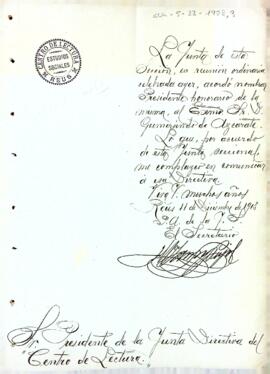 CENTRO DE LECTURA
ESTUDIOS
SOCIALES
REUS
La Junta de esta
Sección, en reunión ordinaria
celebrada ayer, acordó nombrar
Presidente honorario de la
misma, al Excmo Sr. D.
Gumersindo de Azcárate.
Lo que, por acuerdo
de esta Junta seccional,
me complazco en comunicar
á esa Directiva.
Viva V. muchos años
Reus 11 Diciembre 1908
P. A. de la J.
El Secretario
Sr. Presidente de la Junta Directiva del
"Centro de Lectura".